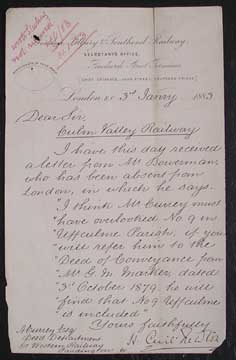 Tilbury & Southend Railway,
SECRETARY'S OFFICE,
Fenchurch Street Terminus
London E.C. 3rd Janry 1883
Dear Sir,
Culm Valley Railway
I have this day received
a letter from Mr Bowerman,
who has been absent from
London, in which he says.
"I think Mr Currey must
"have overlooked No 9 in
"Uffculme Parish, if you
"will refer him to the
"Deed of Conveyance from
"Mr G. M. Marker, dated
"3rd October 1879, he will
"find that No 9 Uffculme
"is included"
Yours faithfully
A Currey Esq
Deed Department
Gt Western Railway
Paddington